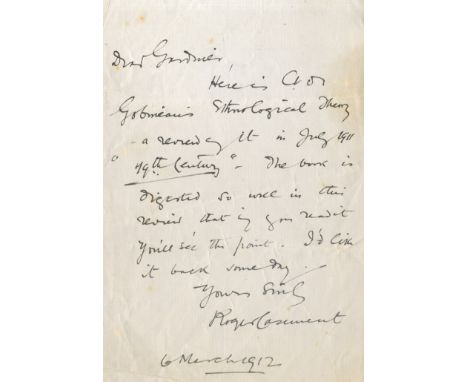 Dear Gardiner,
Here is Ct de
Gobineau's Ethnological Theory
- a review of it in July 1911
"19th Century" - The book is
digested so well in this
review that if you read it
you'll see the point. I'd like
it back some day.
Yours Sincly
Roger Casement
6 March 1912